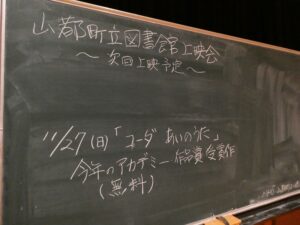 山都町立図書館上映会
～次回上映予定～
11/27(日)「コーダ あいのうた」
今年のアカデミー作品賞受賞作
(無料)